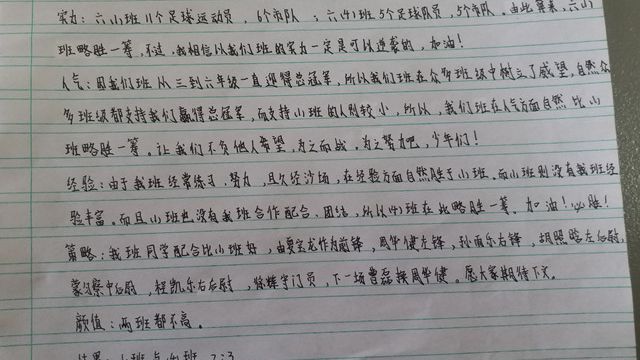 实力：六(1)班11个足球运动员，6个市队；六(4)班5个足球队员，5个市队。由此算来，六(1)
班略胜一等，不过，我相信以我们班的实力一定是可以逆袭的，加油！
人气：因我们班从三到六年级一直迎得总冠军，所以我们班在众多班级中树立了威望，自然众
多班级都支持我们赢得总冠军，而支持(1)班的人则较小，所以，我们班在人气方面自然比(1)
班略胜一筹。让我们不负他人希望，为之而战，为之努力吧，少年们！
经验：由于我班经常练习，努力，且久经沙场，在经验方面自然胜于(1)班。而(1)班则没有我班经
验丰富。而且(1)班也没有我班合作配合、团结，所以(4)班在此略胜一筹。加油！必胜！
策略：我班同学配合比(1)班好，由要宝龙作为前锋，周华健左锋，孙雨乐右锋，胡照晗左后尉，
蒙 察中后尉，程凯乐右后尉，徐辉守门员，下一场曾磊换周华健。愿大家期待下文。
颜值：两班都不高。
结果：(1)班与(4)班 2:3